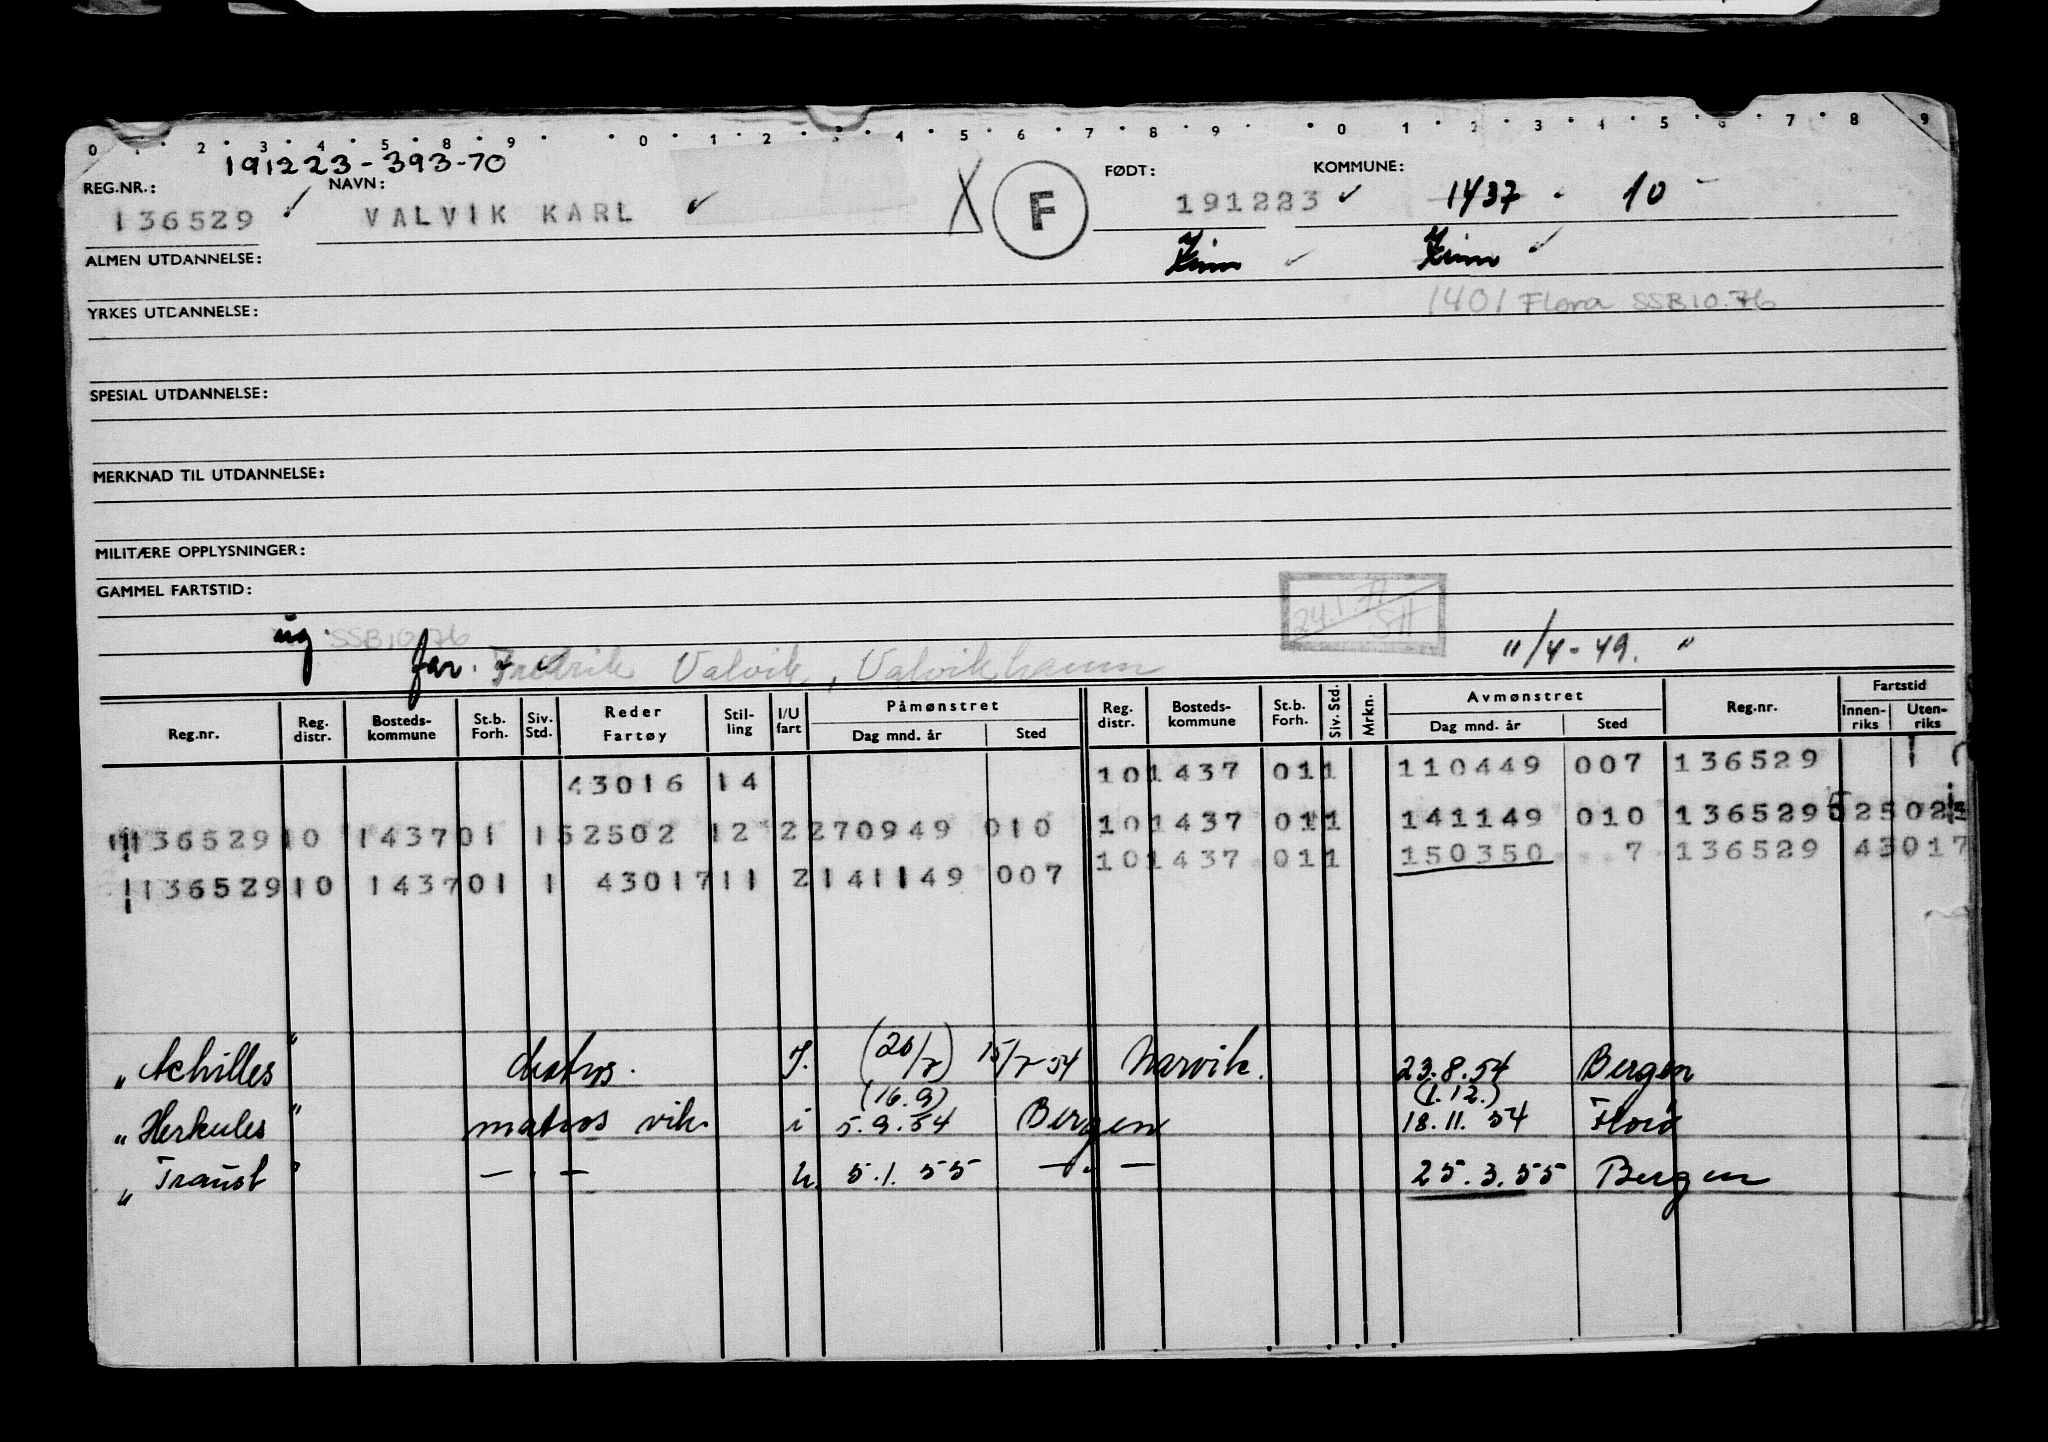 0 1 2 3 4 5 8 9 0 1 2 3 4 5 6 7 8 9 0 1 2 3 4 5 6 7 8 9
191223-393-70
REG.NR.: NAVN: FØDT: KOMMUNE:
136529 VALVIK KARL X F 191223 1437 - 10
ALMEN UTDANNELSE: Kinn Kinn
YRKES UTDANNELSE: 1401 Flora SSB10.76
SPESIAL UTDANNELSE:
MERKNAD TIL UTDANNELSE:
MILITÆRE OPPLYSNINGER:
GAMMEL FARTSTID:
ug. SSB10.76 11/4-49. "
far. Fredrik Valvik, Valvikhamn
Reg.nr. Reg. distr. Bosteds-kommune St.b. Forh. Siv. Std. Reder Fartøy Stil-ling I/U fart Påmønstret Dag mnd. år Sted Reg. distr. Bosteds-kommune St.b. Forh. Siv. Std. Mrkn. Avmønstret Dag mnd. år Sted Reg.nr. Fartstid Innen-riks Uten-riks
43016 14 10 1437 01 1 110449 007 136529
136529 10 1437 01 1 52502 12 2 270949 010 10 1437 01 1 141149 010 136529 52502
136529 10 1437 01 1 43017 11 2 141149 007 10 1437 01 1 150350 7 136529 43017
"Achilles" Matros. I. (20/7) 15/7 54 Narvik. 23.8.54 Bergen
"Herkules" matros vik. i (16.9) 5.9.54 Bergen (1.12.) 18.11.54 Florø
"Traust" — . — u. 5.1.55 — . — 25.3.55 Bergen